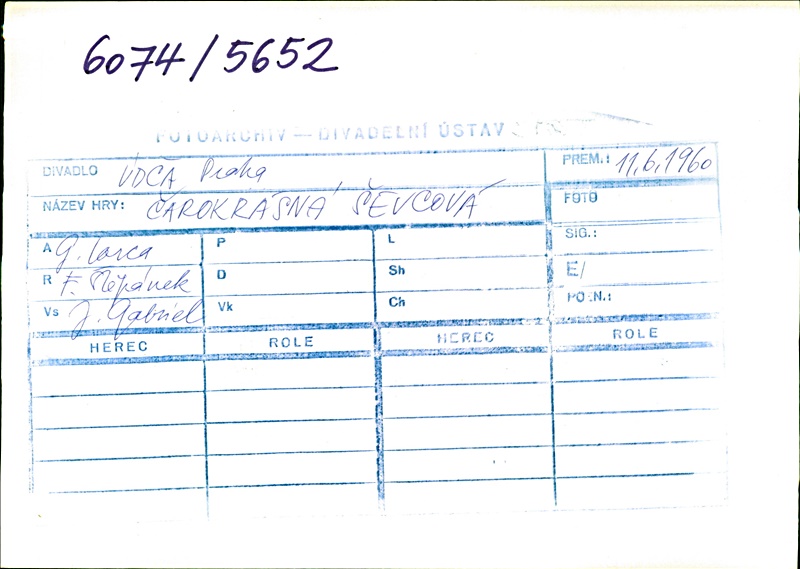 6074/5652
FOTOARCHIV — DIVADELNÍ ÚSTAV
DIVADLO ÚDČA Praha PREM.: 11.6.1960
NÁZEV HRY: ČAROKRÁSNÁ ŠEVCOVÁ FOTO
A G. Lorca P L SIG.:
R F. Štěpánek D Sh E/
Vs J. Gabriel Vk Ch PO.N.:
HEREC ROLE HEREC ROLE